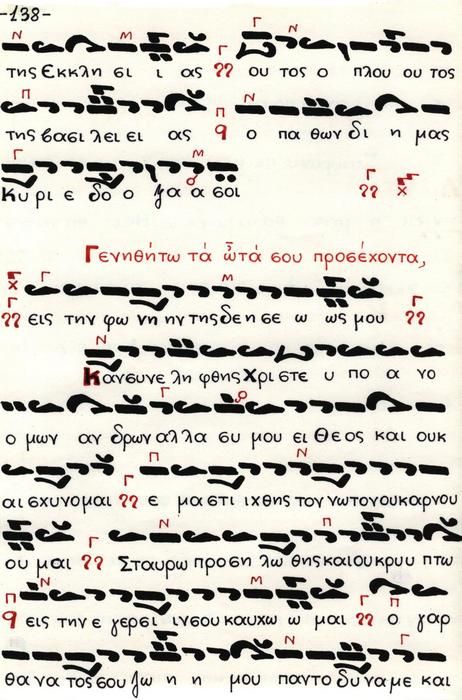 -138-
της Εκκλη σι ι ας ου τος ο πλου ου τος
της βασι λει ει ας ο πα θων δι η μας
Κυ ρι ε δο ο ξα α σοι
Γενηθήτω τά ὦτά σου προσέχοντα,
εις την φω νη ην της δε η σε ω ως μου
Καν συνε λη φθης Χρι στε υ πο α νο
ο μων αν δρων αλ λα συ μου ει Θε ος και ουκ
αι σχυνομαι ε μα στι ιχθης τον νωτον ουκ αρνου
ου μαι Σταυρω προση λω θης και ου κρυυ πτω
εις την ε γερσι ιν σου καυχω ω μαι ο γαρ
θα να τος σου ζω η η μου παντο δυ να με και